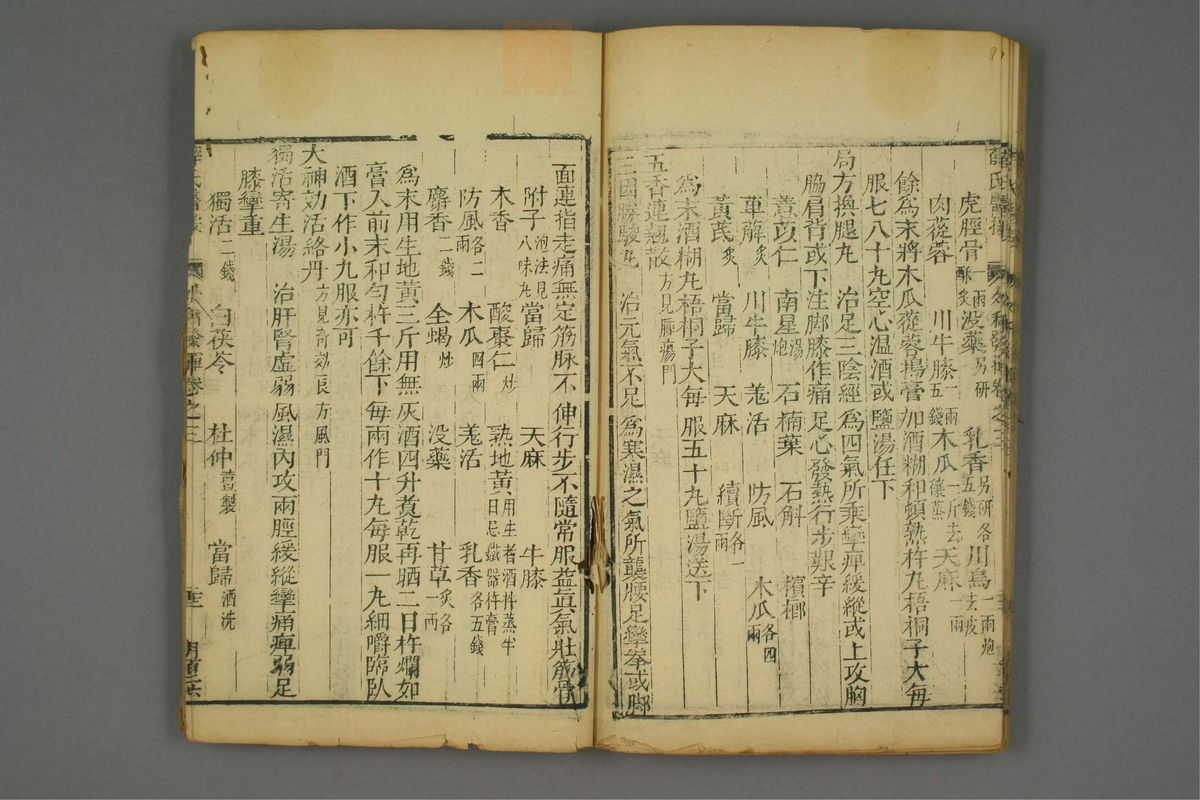 虎脛骨酥炙 一兩 没藥另研 乳香另研各五錢 川烏一兩炮去皮
肉蓯蓉 川牛膝一兩五錢 木瓜一斤去穰蒸 天麻一兩
餘為末將木瓜蓯蓉搗膏加酒糊和頓熟杵丸梧桐子大每
服七八十丸空心温酒或鹽湯任下
局方換腿丸 治足三陰經為四氣所乘攣痺緩縱或上攻胸
脇肩背或下注脚膝作痛足心發熱行步艱辛
薏苡仁 南星湯炮 石楠葉 石斛 檳榔
萆薢炙 川牛膝 羗活 防風 木瓜各四兩
黃芪炙 當歸 天麻 續斷各一兩
為末酒糊丸梧桐子大每服五十丸鹽湯送下
五香連翹散方見臁瘡門
三因勝駿丸 治元氣不足為寒濕之氣所襲腰足攣拳或脚
面連指走痛無定筋脉不伸行步不隨常服益真氣壯筋骨
附子炮法見八味丸 當歸 天麻 牛膝
木香 酸棗仁炒 熟地黃用生者酒拌蒸半日忌鐵器杵膏
防風各二兩 木瓜四兩 羗活 乳香各五錢
麝香二錢 全蝎炒 没藥 甘草炙各一兩
為末用生地黃三斤用無灰酒四升煑乾再晒二日杵爛如
膏入前末和勻杵千餘下每兩作十丸每服一丸細嚼臨臥
酒下作小丸服亦可
大神効活絡丹方見奇効良方風門
獨活寄生湯 治肝腎虛弱風濕内攻兩脛緩縱攣痛痺弱足
膝攣重
獨活二錢 白茯苓 杜仲薑製 當歸酒洗